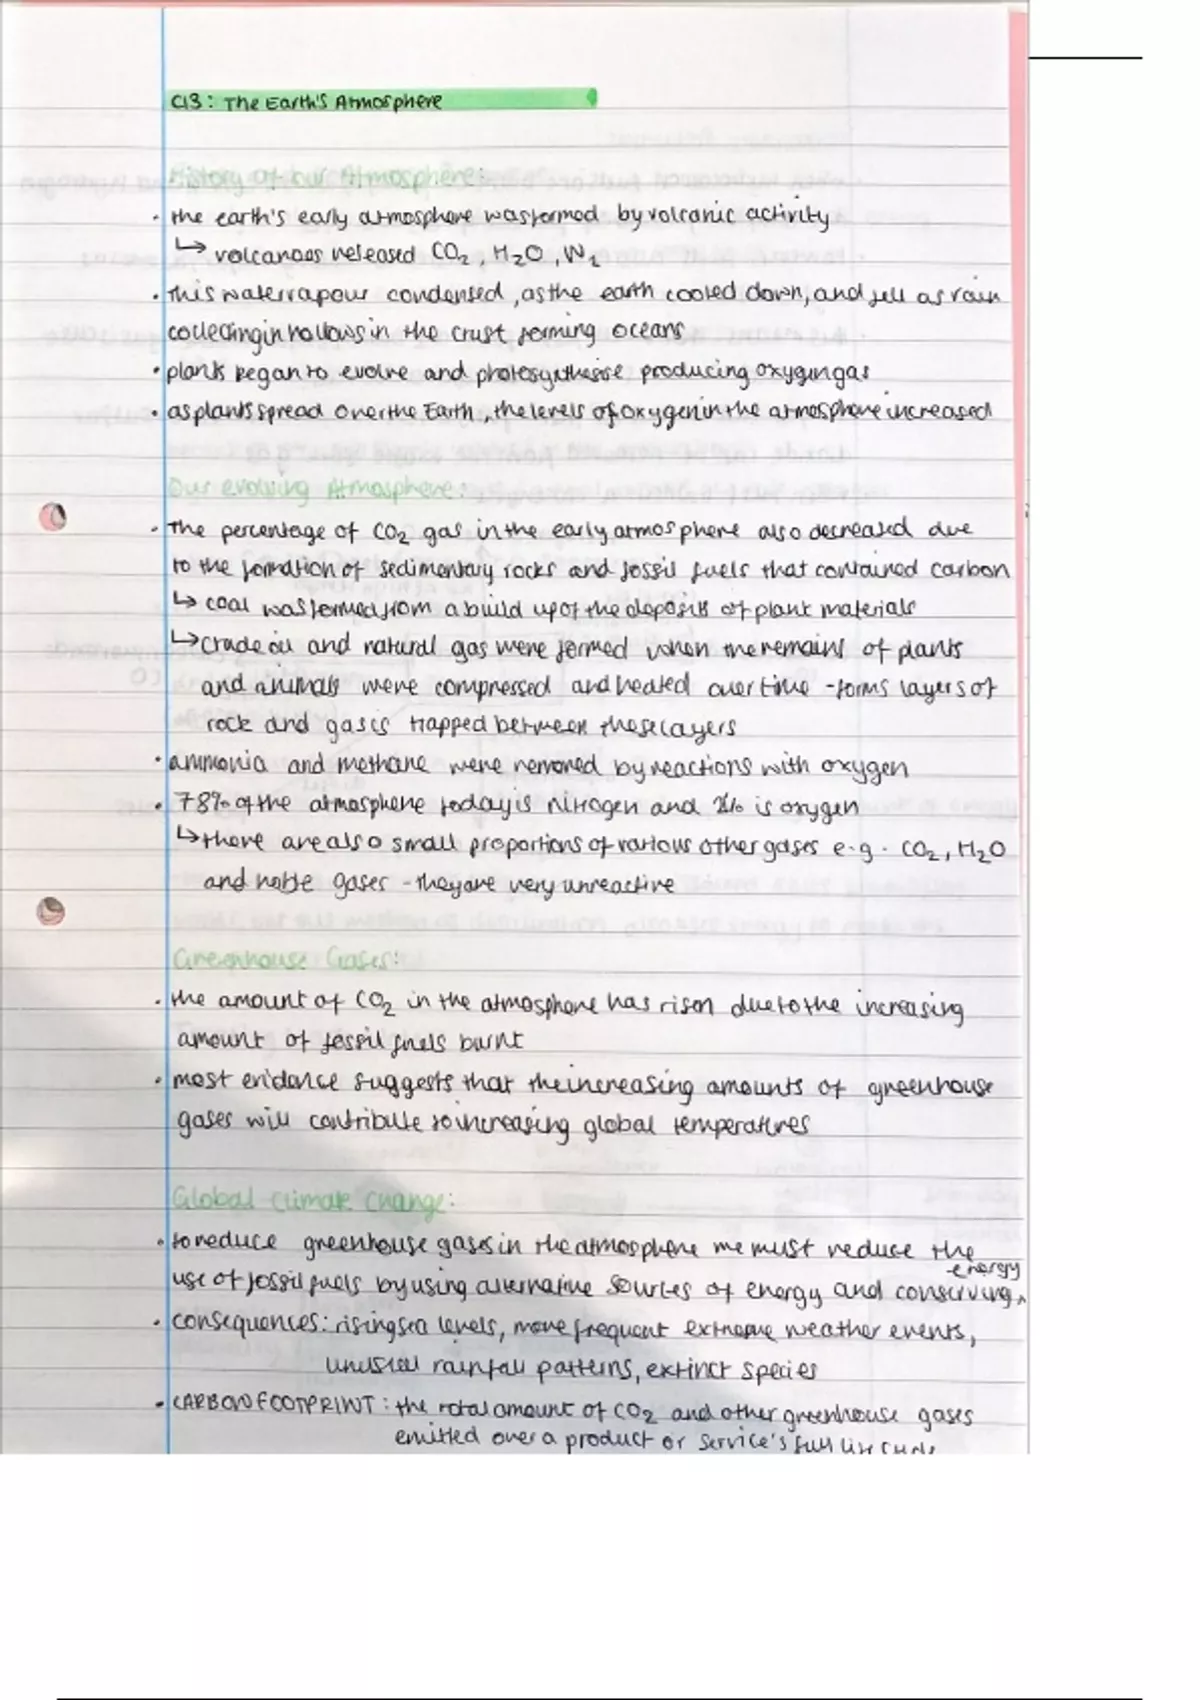 C13: The Earth's Atmosphere
History of our Atmosphere:
· the earth's early atmosphere was formed by volcanic activity
↳ volcanoes released CO₂, H₂O, N₂
· this water vapour condensed, as the earth cooled down, and fell as rain
collecting in hollows in the crust forming oceans
· plants began to evolve and photosynthesise producing oxygen gas
· as plants spread over the Earth, the levels of oxygen in the atmosphere increased
Our evolving Atmosphere:
· the percentage of CO₂ gas in the early atmosphere also decreased due
to the formation of sedimentary rocks and fossil fuels that contained carbon
↳ coal was formed from a build up of the deposits of plant materials
↳ crude oil and natural gas were formed when the remains of plants
and animals were compressed and heated over time - forms layers of
rock and gas is trapped between these layers
· ammonia and methane were removed by reactions with oxygen
· 78% of the atmosphere today is nitrogen and 21% is oxygen
↳ there are also small proportions of various other gases e.g. CO₂, H₂O
and noble gases - they are very unreactive
Greenhouse Gases:
· the amount of CO₂ in the atmosphere has risen due to the increasing
amount of fossil fuels burnt
· most evidence suggests that the increasing amounts of greenhouse
gases will contribute to increasing global temperatures
Global climate change:
· to reduce greenhouse gases in the atmosphere we must reduce the
use of fossil fuels by using alternative sources of energy and conserving energy
· consequences: rising sea levels, more frequent extreme weather events,
unusual rainfall patterns, extinct species
· CARBON FOOTPRINT: the total amount of CO₂ and other greenhouse gases
emitted over a product or service's full life cycle